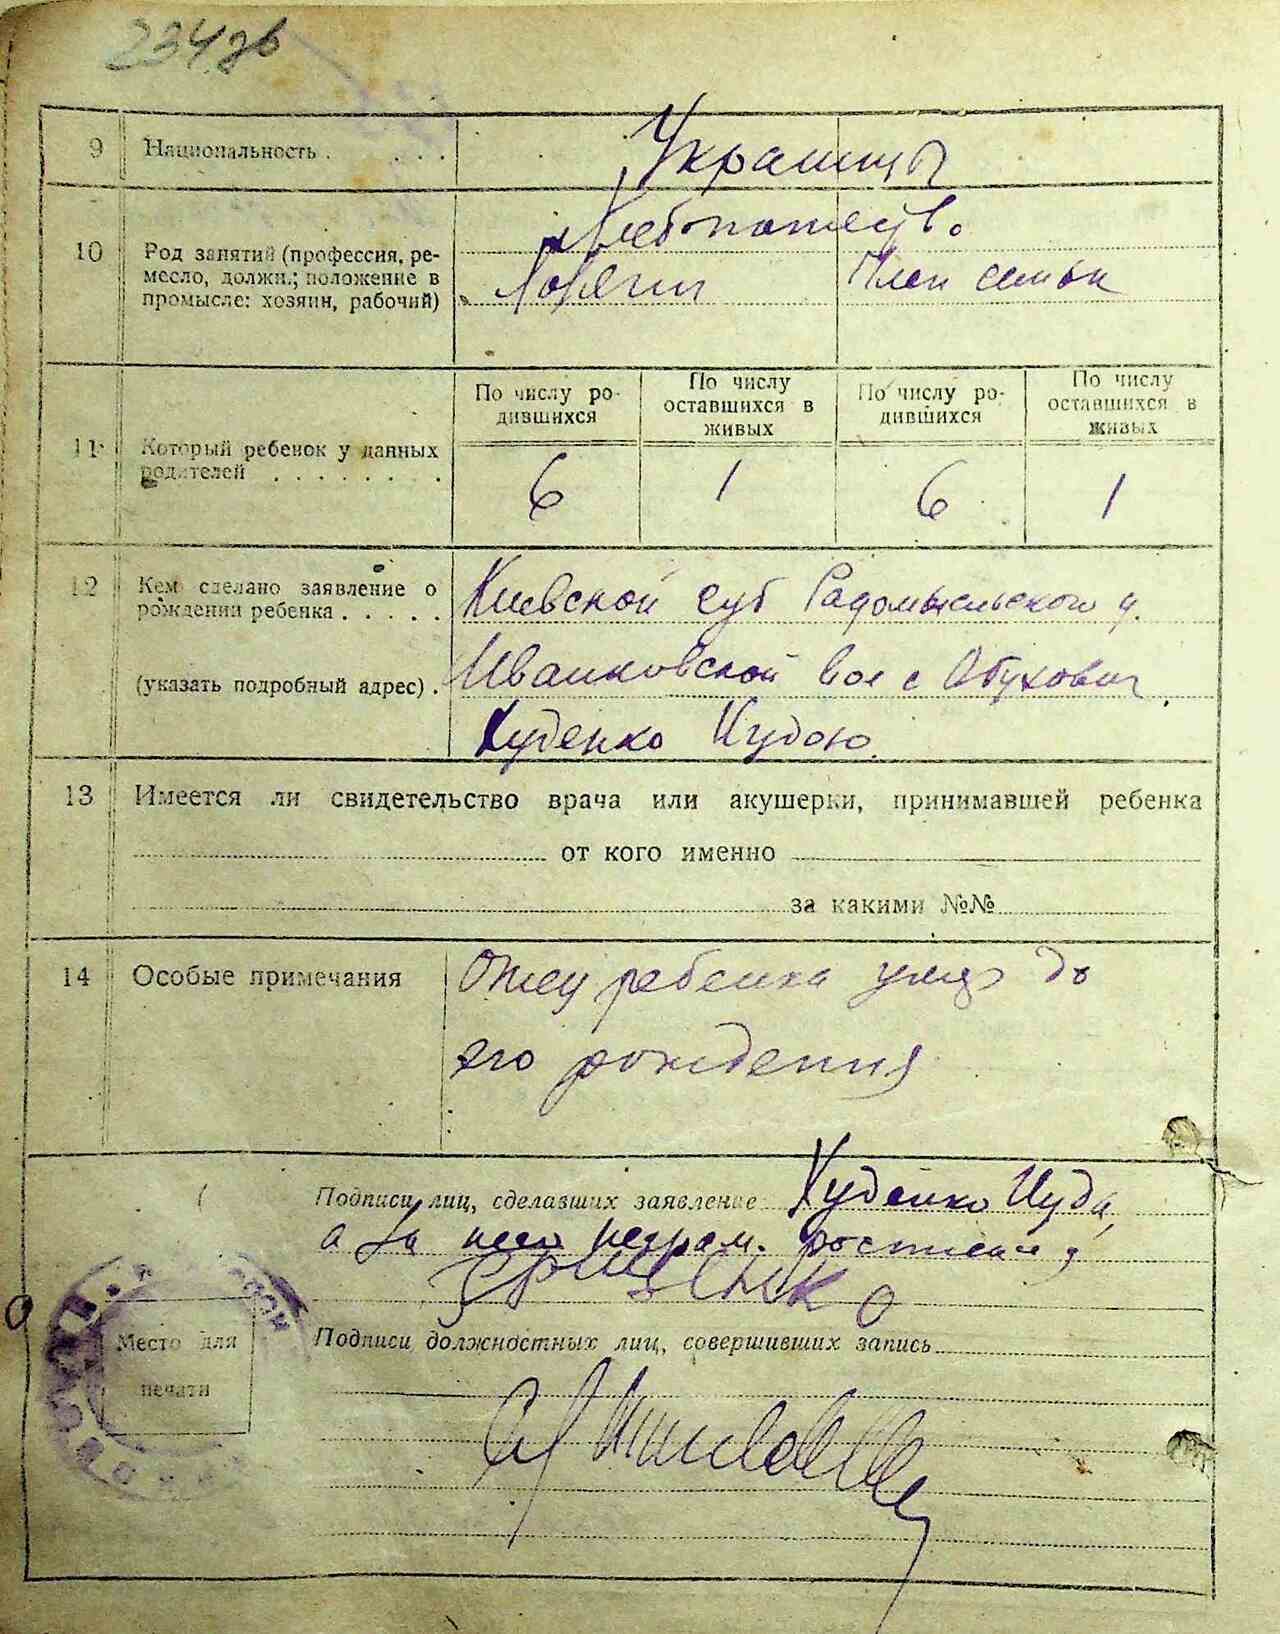 234 зв
9 Национальность . . . . Украинцы
10 Род занятий (профессия, ре-
месло, должн.; положение в
промысле: хозяин, рабочий)
Хлебопашеств.
Хозяин Член семьи
11 Который ребенок у данных
родителей . . . . . . . .
По числу ро-
дившихся
По числу
оставшихся в
живых
По числу ро-
дившихся
По числу
оставшихся в
живых
6 1 6 1
12 Кем сделано заявление о
рождении ребенка . . . . .
(указать подробный адрес) .
Киевской губ Радомысльского у.
Иванковской вол с Обуховичи
Худенко Иудою
13 Имеется ли свидетельство врача или акушерки, принимавшей ребенка
от кого именно
за какими №№
14 Особые примечания
Отец ребенка умер до
его рождения
Подписи лиц, сделавших заявление Худенко Иуда,
а за него неграм. росписался
Гриценко
Подписи должностных лиц, совершивших запись
Место для
печати